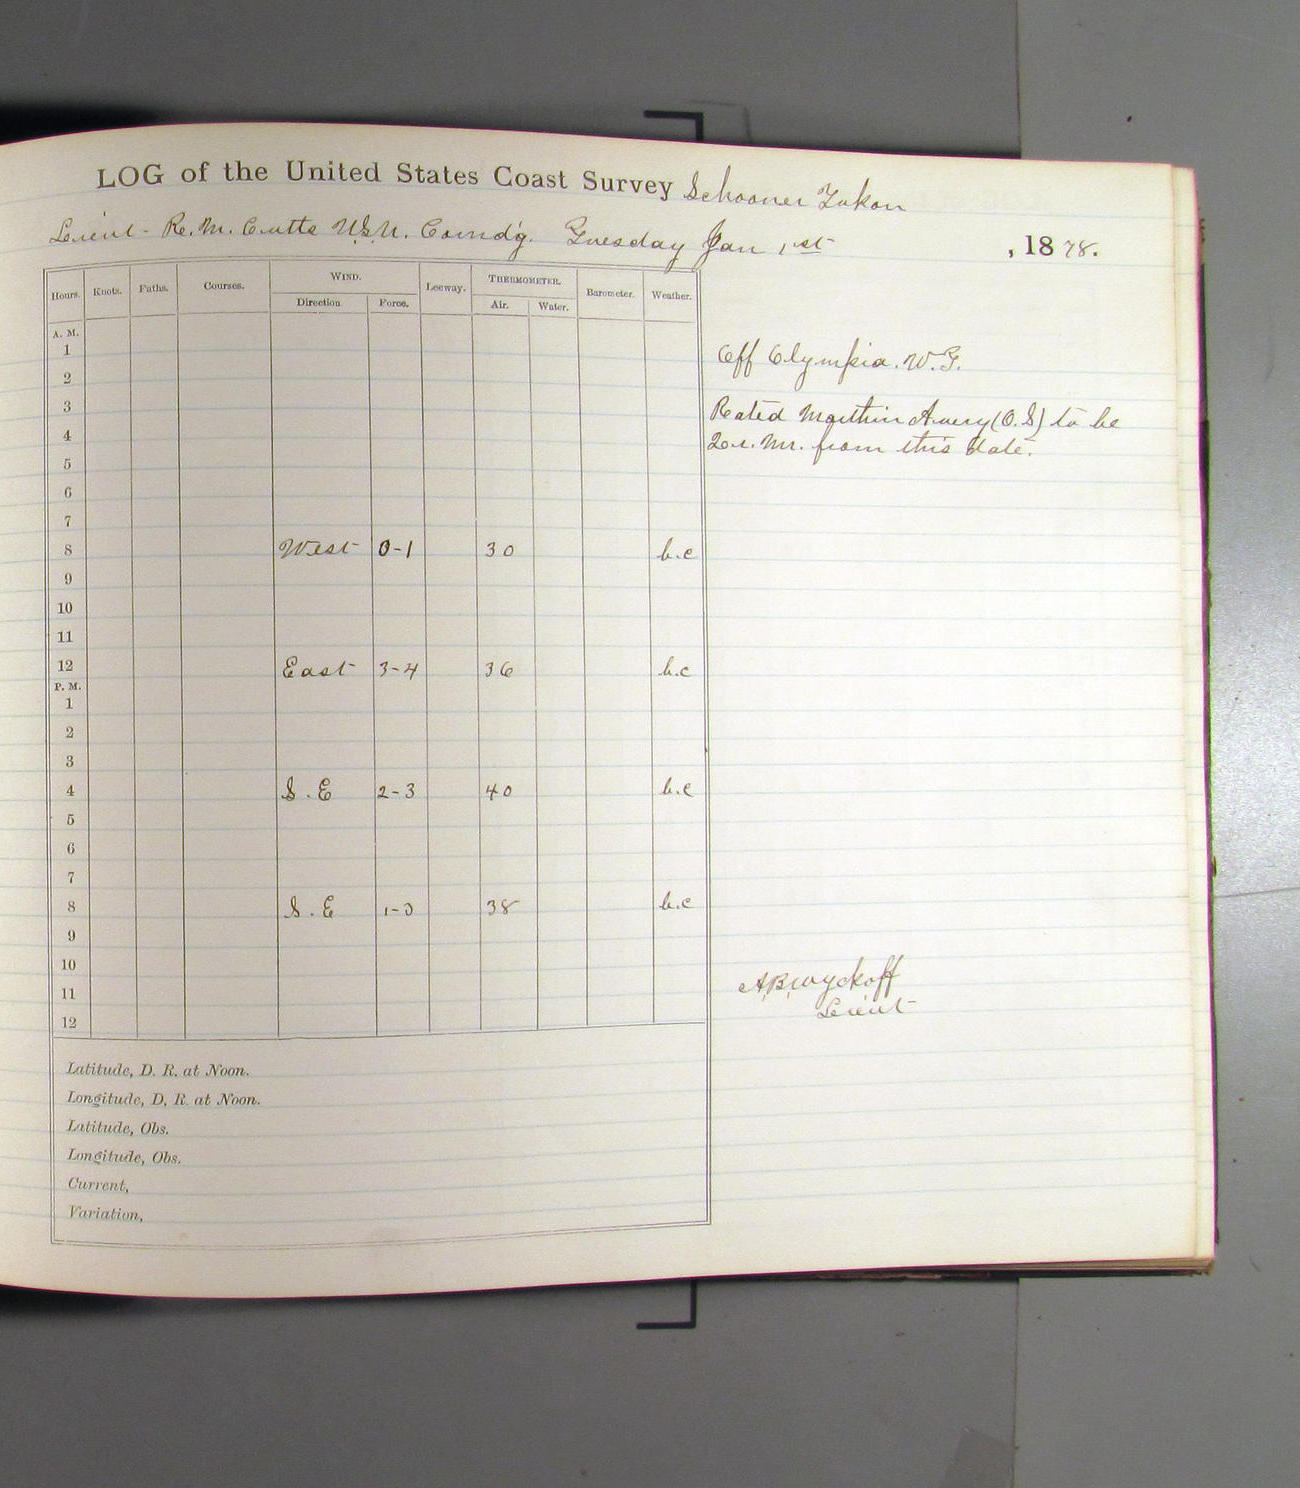 LOG of the United States Coast Survey Schooner Yukon
Lieut- R. M. Cutts U.S.N. Comd'g. Tuesday Jan 1st, 1878.
Hours. Knots. Faths. Courses. WIND. Leeway. THERMOMETER. Barometer. Weather.
Direction Force. Air. Water.
A. M.
1
Off Olympia. W.T.
2
3
Rated Martin Avery (O.S) to be
4
from this date.
5
6
7
8 West 0-1 30 b.c
9
10
11
12 East 3-4 36 b.c
P. M.
1
2
3
4 S.E 2-3 40 b.c
5
6
7
8 S.E 1-3 38 b.c
9
10
A.B. Wyckoff
11
Lieut
12
Latitude, D. R. at Noon.
Longitude, D. R. at Noon.
Latitude, Obs.
Longitude, Obs.
Current,
Variation,